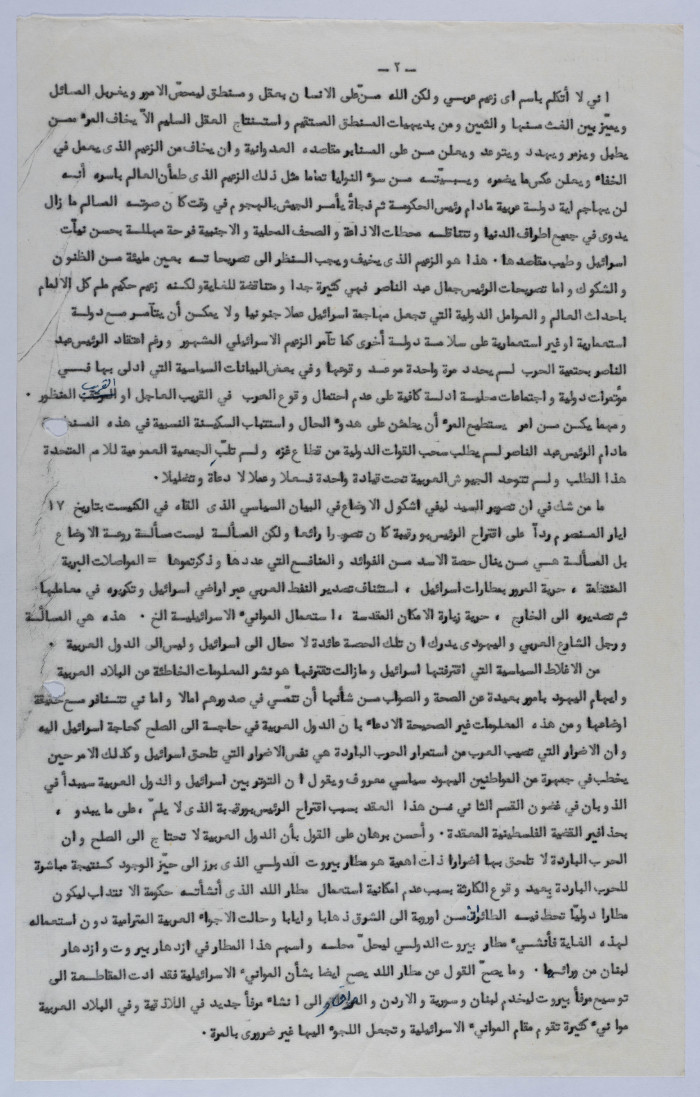 - ٢ -
اني لا أتكلم باسم اى زعيم عربي ولكن الله منّ على الانسان بعقل ومنطق ليمحّص الامور ويغربل المسائل
ويميّز بين الغث منها والثمين ومن بديهيات المنطق المستقيم واستنتاج العقل السليم الاّ يخاف المرء ممن
يطبل ويزمر ويهدد ويتوعد ويعلن من على المنابر مقاصده العدوانية وان يخاف من الزعيم الذى يعمل في
الخفاء ويعلن عكس ما يضمره ويبيّته من سوء النوايا تماما مثل ذلك الزعيم الذى طمأن العالم باسره أنه
لن يهاجم اية دولة عربية مادام رئيس الحكومة ثم فجاةً يأمر الجيش بالهجوم في وقت كان صوته السالم ما زال
يدوى في جميع اطراف الدنيا وتتناقله محطات الاذاعة والصحف المحلية والاجنبية فرحة مهللة بحسن نيآت
اسرائيل وطيب مقاصدها. هذا هو الزعيم الذى يخيف ويجب النظر الى تصريحاته بعين مليئة من الظنون
والشكوك واما تصريحات الرئيس جمال عبد الناصر فهي كثيرة جدا ومتناقضة للغاية ولكنه زعيم حكيم ملم كل الالمام
باحداث العالم والعوامل الدولية التي تجعل مهاجمة اسرائيل عملا جنونيا ولا يمكن أن يتآمر مع دولة
استعمارية او غير استعمارية على سلامة دولة أخرى كما تآمر الزعيم الاسرائيلي المشهور ورغم اعتقاد الرئيس عبد
الناصر بحتمية الحرب لم يحدد مرة واحدة موعد وقوعها وفي بعض البيانات السياسية التي ادلى بها في
مؤتمرات دولية واجتماعات محلية ادلة كافية على عدم احتمال وقوع الحرب في القريب العاجل او القريب المنظور.
ومهما يكن من امر يستطيع المرء أن يطمئن على هدوء الحال واستتباب السكينة النسبية في هذه
مادام الرئيس عبد الناصر لم يطلب سحب القوات الدولية من قطاع غزه ولم تلبّ الجمعية العمومية للامم المتحدة
هذا الطلب ولم تتوحد الجيوش العربية تحت قيادة واحدة فعلا وعملا لا دعاة وتضليلا.
ما من شك في ان تصوير السيد ليفي اشكول الاوضاع في البيان السياسي الذى القاه في الكنيست بتاريخ ١٧
ايار المنصوم رداً على اقتراح الرئيس بورقيبة كان تصويرا رائعا ولكن المسألة ليست مسألة روعة الاوضاع
بل المسألة هي من ينال حصة الاسد من الفوائد والمنافع التي عددها وذكرتموها = المواصلات البرية
المنتظمة ، حرية المرور بمطارات اسرائيل ، استئناف تصدير النفط العربي عبر اراضي اسرائيل وتكريره في معاملها
ثم تصديره الى الخارج ، حرية زيارة الامكان المقدسة ، استعمال الموانيء الاسرائيلية الخ. هذه هي المسألة
ورجل الشارع العربي واليهودى يدرك ان تلك الحصة عائدة لا محال الى اسرائيل وليس الى الدول العربية .
من الاغلاط السياسية التي اقترفتها اسرائيل وما زالت تقترفها هو نشر المعلومات الخاطئة عن البلاد العربية
وايهام اليهود بامور بعيدة عن الصحة والصواب من شأنها أن تنمّي في صدورهم امالا واماني تتنافر مع حقيقة
اوضاعها ومن هذه المعلومات غير الصحيحة الادعاء بان الدول العربية في حاجة الى الصلح كحاجة اسرائيل اليه
وان الاضرار التي تصيب العرب من استمرار الحرب الباردة هي نفس الاضرار التي تلحق اسرائيل وكذلك الامر حين
يخطب في جمهرة من المواطنين اليهود سياسي معروف ويقول ان التوتر بين اسرائيل والدول العربية سيبدأ في
الذوبان في غضون القسم الثاني من هذا العقد بسبب اقتراح الرئيس بورقيبة الذى لا يلمّ ، على ما يبدو ،
بحذافير القضية الفلسطينية المعقدة. وأحسن برهان على القول بأن الدول العربية لا تحتاج الى الصلح وان
الحرب الباردة لا تلحق بها اضرارا ذات اهمية هو مطار بيروت الدولي الذى برز الى حيّز الوجود كنتيجة مباشرة
للحرب الباردة بعيد وقوع الكارثة بسبب عدم امكانية استعمال مطار اللد الذى أنشأته حكومة الانتداب ليكون
مطارا دوليّا تحط فيه الطائرات من اوروبة الى الشرق ذهابا وايابا وحالت الاجواء العربية المترامية دون استعماله
لهذه الغاية فأنشيء مطار بيروت الدولي ليحلّ محله واسهم هذا المطار في ازدهار بيروت وازدهار
لبنان من ورائها. وما يصحّ القول عن مطار اللد يصح ايضا بشأن الموانيء الاسرائيلية فقد ادت المقاطعة الى
توسيع مرفأ بيروت ليخدم لبنان وسورية والاردن والعراق والى انشاء مرفأ جديد في اللاذقية وفي البلاد العربية
موانيء كثيرة تقوم مقام الموانيء الاسرائيلية وتجعل اللجوء اليها غير ضرورى بالمرة.